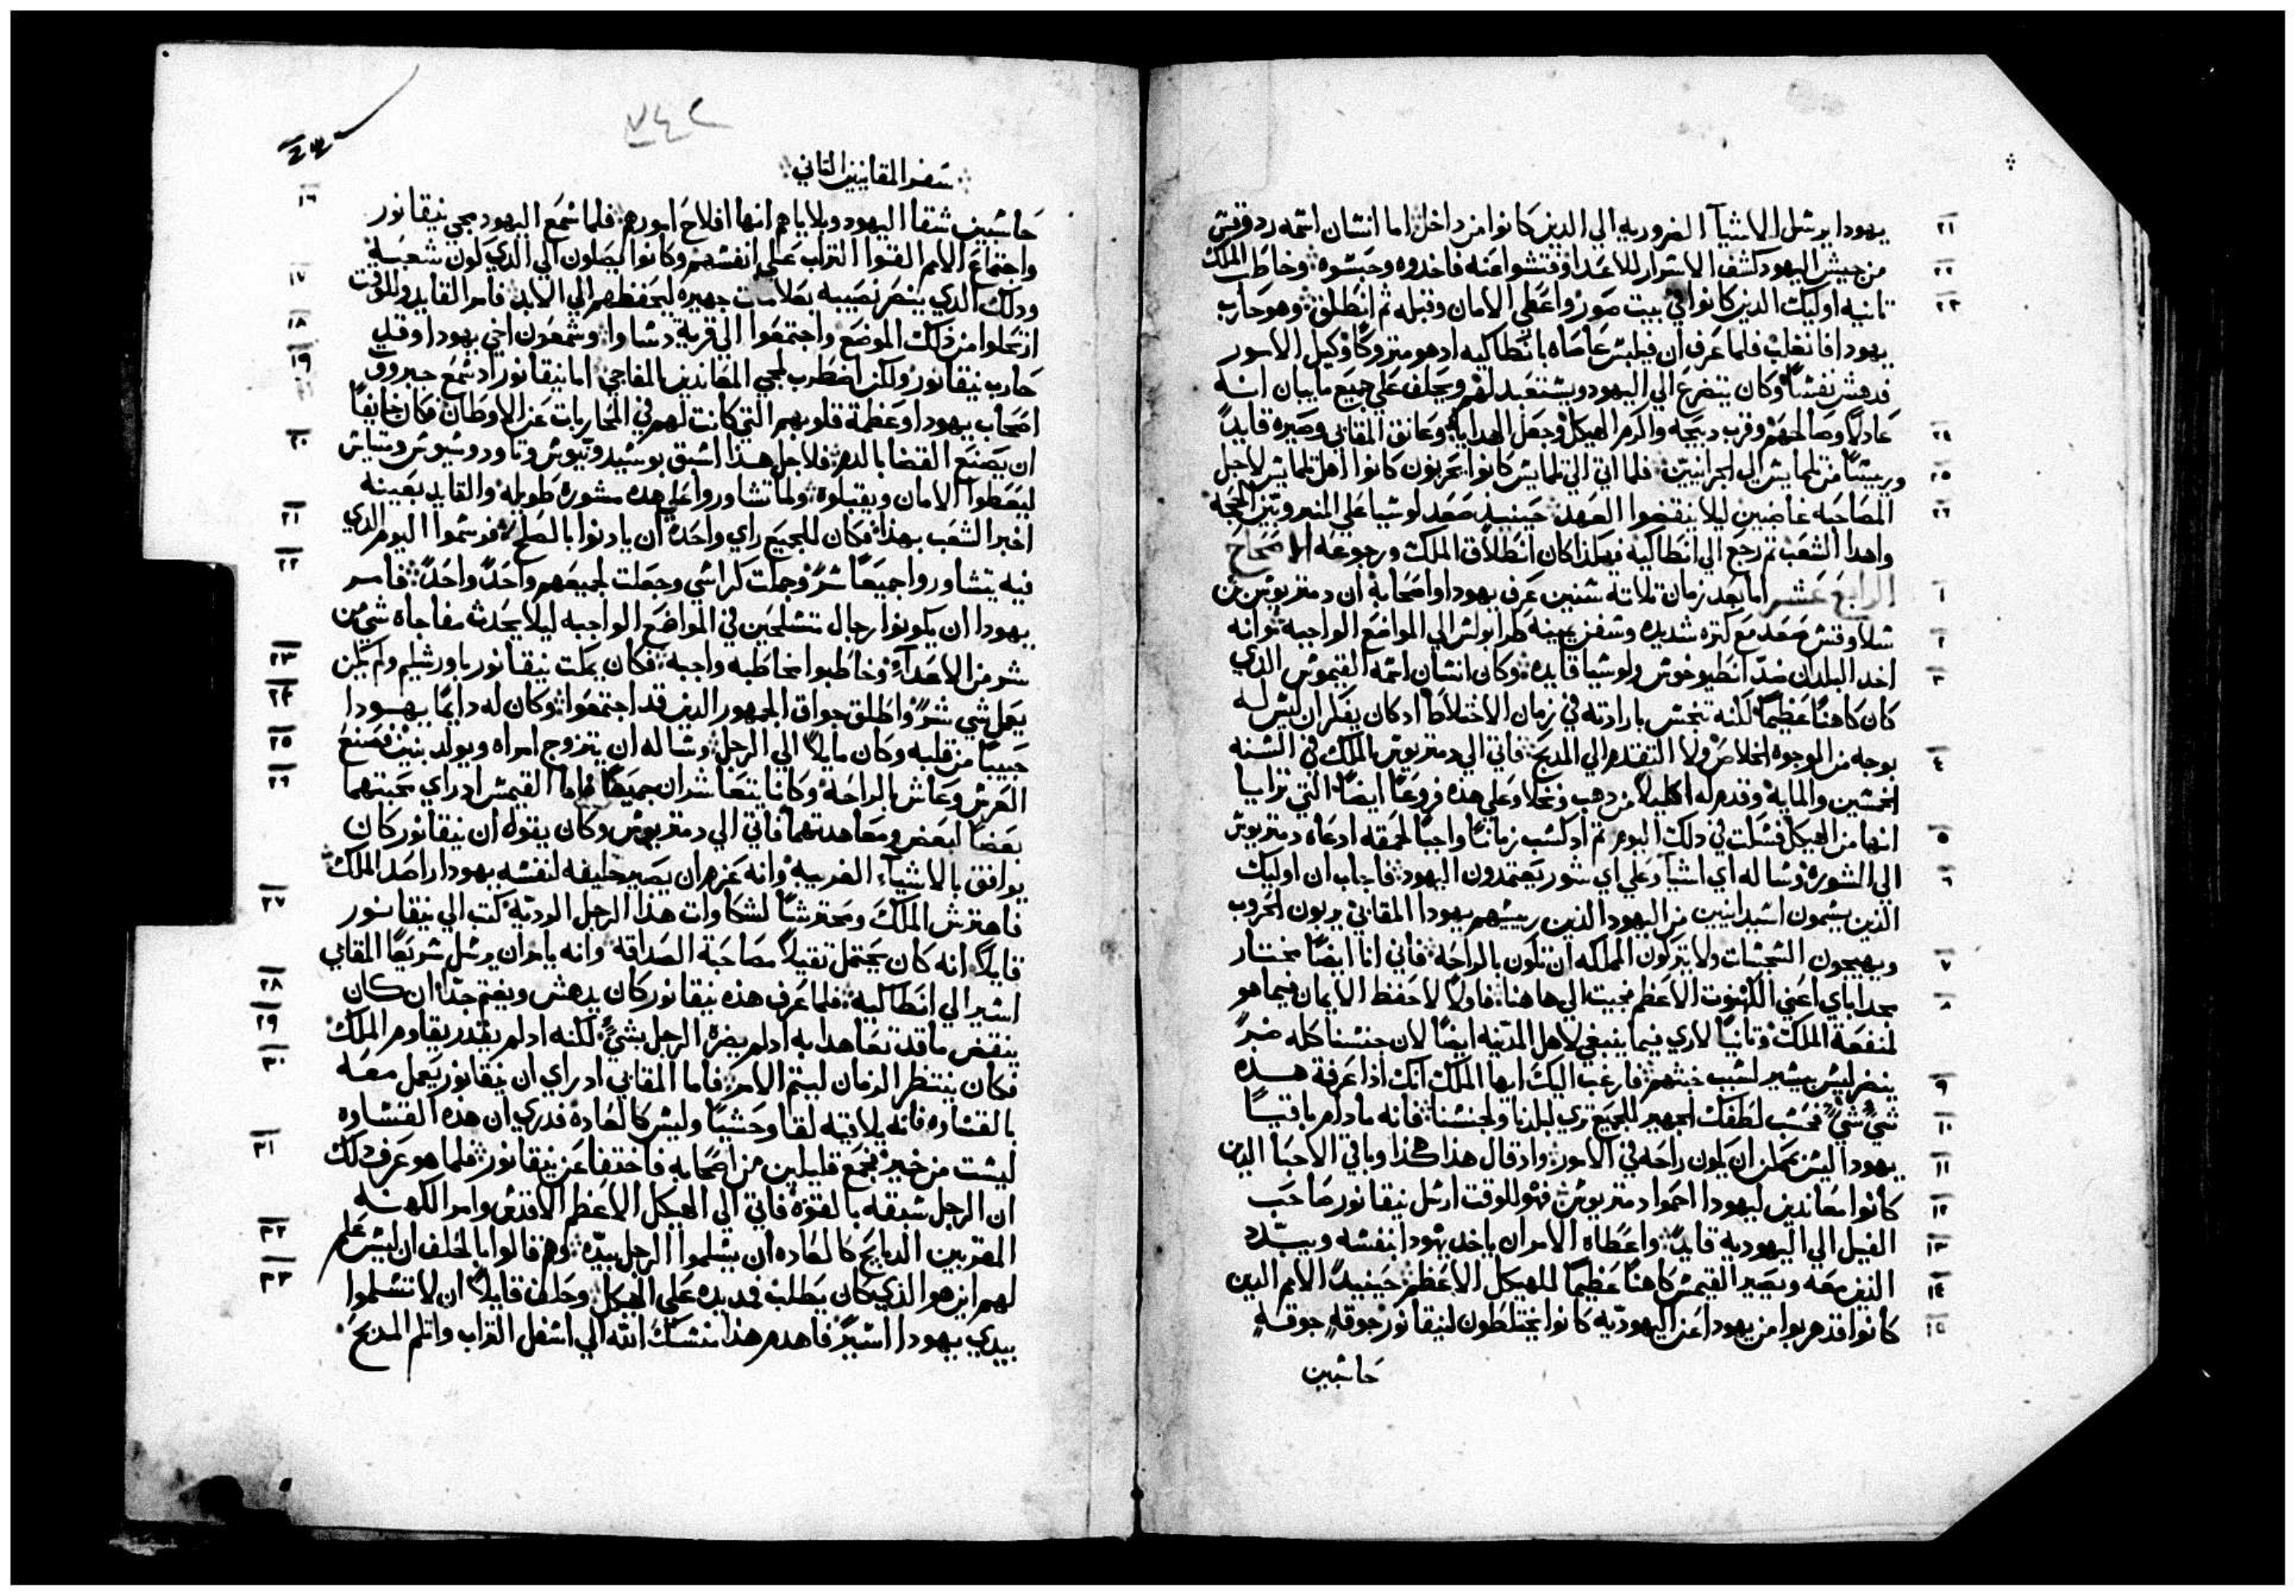 يهودا يرسل الاشيآ الضروريه الي الدين كانوا من داخل اما انسان اسمه ردوقس
من جيش اليهود كشف الاسرار للاعدا وفتشوا عنه فاخدوه وحبسوه وخاطب الملك
تانيه اوليك الدين كانوا في بيت صور واعطي الامان وقبله تم انطلق وهو حارب
يهودا فانغلب فلما عرف ان فيلبس عاصاه بانطاكيه ادهو متروكا وكيل الامور
فدهش نفسا وكان يتضرع الي اليهود ويستعبد لهم ويحلف علي جميع ما يبان انه
عادلا وصالحهم وقرب دبيحه واكرم الهيكل وجعل الهدايا وعانق المقابي وصيره قايدا
وريسا من تلمايس الي الجرانيين فلما اتي الي تلمايس كانوا يحزنون كانوا اهل تلمايس لاجل
المصاحبه غاضبين ليلا ينقضوا العهد حينيد صعد لوسيا علي المنبر وبين الحجه
واهدا الشعب تم رجع الي انطاكيه فهكذا كان انطلاق الملك ورجوعه الاصحاح
الرابع عشر اما بعد زمان تلاتة سنين عرف يهودا واصحابه ان دمتريوس بن
سلاوقس صعد مع كتره شديده وسفن بمينه طرابولس الي المواضع الواجبه وانه
اخد البلدان ضد انطيوخوس ولوسيا قايده وكان انسان اسمه القيموس الدي
كان كاهنا عظيما لكنه تنجس بارادته في زمان الاختلاط ادكان يفكر ان ليس له
بوجه من الوجوه الخلاص ولا التقدم الي المدبح فاتي الي دمتريوس الملك في السنه
الخمسين والمايه وقدم له اكليلا من دهب ونخلا وعلي هده فروعا ايضا التي ترايا
انها من الهيكل فسكت في دلك اليوم تم ادكسب زمانا واجبا لحمقه ادعاه دمتريوس
الي الشوره وساله اي اشيآ وعلي اي شور يعتمدون اليهود فاجاب ان اوليك
الدين يسمون اسيدانيين من اليهود الدين رييسهم يهودا المقابي يربون الحروب
ويهيجون السجسات ولا يتركون المملكه ان تكون بالراحه فاني انا ايضا مختار
مجد اباي اعني الكهنوت الاعظم فجيت الي هاهنا فاولا لاحفظ الايمان فيما هو
لمنفعة الملك وتانيا لاري فيما ينبغي لاهل المدينه ايضا لان جنسنا كله ضر
ينضر ليس بيسير لسبب خبثهم فارغب اليك ايها الملك انك اذا عرفة هده
شي شي فحسب لطفك الجهير للجميع تري لبلدنا ولجنسنا فانه مادام باقيا
يهودا ليس يمكن ان يكون راحه في الامور واد قال هدا هكذا وباقي الاحبا الدين
كانوا معاندين ليهودا احموا دمتريوس فهو للوقت ارسل نيقانور صاحب
الفيل الي اليهوديه قايدا واعطاه الامر ان ياخد يهودا بنفسه ويبدد
الدين معه ويصير القيمس كاهنا عظيما للهيكل الاعظم حينيد الامم الدين
كانوا قد هربوا من يهودا عن اليهوديه كانوا يختلطون لنيقانور جوقه جوقه
حاسبين
سفر المقابيين التاني
حاسبين شقا اليهود وبلاياهم انها افلاح امورهم فلما سمع اليهود مجي نيقانور
واجتماع الامم القوا التراب علي انفسهم وكانوا يصلون الي الدي كون شعبه
ودلك الدي ينصر نصيبه بعلامات جهيره ليحفظهم الي الابد فامر القايد وللوقت
ارتحلوا من دلك الموضع واجتمعوا الي قرية دساوا وسمعون اخي يهودا وقد
حارب نيقانور ولكن اضطرب لمجي المعاندين المفاجي اما نيقانور اد سمع جبروت
اصحاب يهودا وعظمة قلوبهم التي كانت لهم في المحاربات عن الاوطان فكان خايفا
ان يصنع القضا بالدم فلاجل هدا اسبق بوسيدونيوس وتاودوسيوس ومتياس
ليعطوا الامان ويقبلوه ولما تشاوروا علي هده مشوره طويله والقايد بعينه
اخبر الشعب بهدا فكان للجميع راي واحده ان يادنوا بالصلح فرسموا اليوم الدي
فيه يتشاوروا جميعا سرا وحملت كراسي وجعلت لجميعهم واحدا واحدا فامر
يهودا ان يكونوا رجال متسلحين في المواضع الواجبه ليلا يحدث مفاجاه شي من
شر من الاعدآ وخاطبوا مخاطبه واجبه فكان يمكت نيقانور باورشليم ولم يكن
يعمل شي شر واطلق جواق الجمهور الدين قد اجتمعوا وكان له دايما يهودا
حبيبا من قلبه وكان مايلا الي الرجل وساله ان يتزوج امراه ويولد بنين فصنع
العرس وعاش بالراحه وكانا يتعاشران جميعا فاما القيمس اد راي محبتهما
بعضا لبعض ومعاهدتهما فاتي الي دمتريوس وكان يقول ان نيقانور كان
يوافق بالاشيآء الغريبه وانه عزم ان يصير خليفه لنفسه يهودا راصد الملك
فاهترس الملك ومحترشا لشكاوات هدا الرجل الرديه كتب الي نيقانور
قايلا انه كان يحتمل تقيلا مصاحبة الصداقه وانه يامر ان يرسل سريعا المقابي
اسير الي انطاكيه فلما عرف هده نيقانور كان يدهش ويغتم جدا ان كان
ينقض ما قد تعاهدا به اد لم يضره الرجل بشي لكنه اد لم يقدر يقاوم الملك
فكان ينتظر الزمان ليتم الامر فاما المقابي اد راي ان نيقانور يعمل معه
بالقساوه فانه يلاقيه لقا وحشيا وليس كالعاده فدري ان هده القساوه
ليست من خير فجمع قليلين من اصحابه فاختفا عن نيقانور فلما هو عرف دلك
ان الرجل سبقه بالقوه فاتي الي الهيكل الاعظم الاقدس وامر الكهنه
المقربين الدبايح كالعاده ان يسلموا الرجل بيده وهم قالوا بالحلف ان ليس علم
لهم اين هو الذي كان يطلب فمد يده علي الهيكل وحلف قايلا ان لا تسلموا
بيدي يهودا اسير فاهدم هدا منسك الله الي اسفل التراب واتلم المدبح